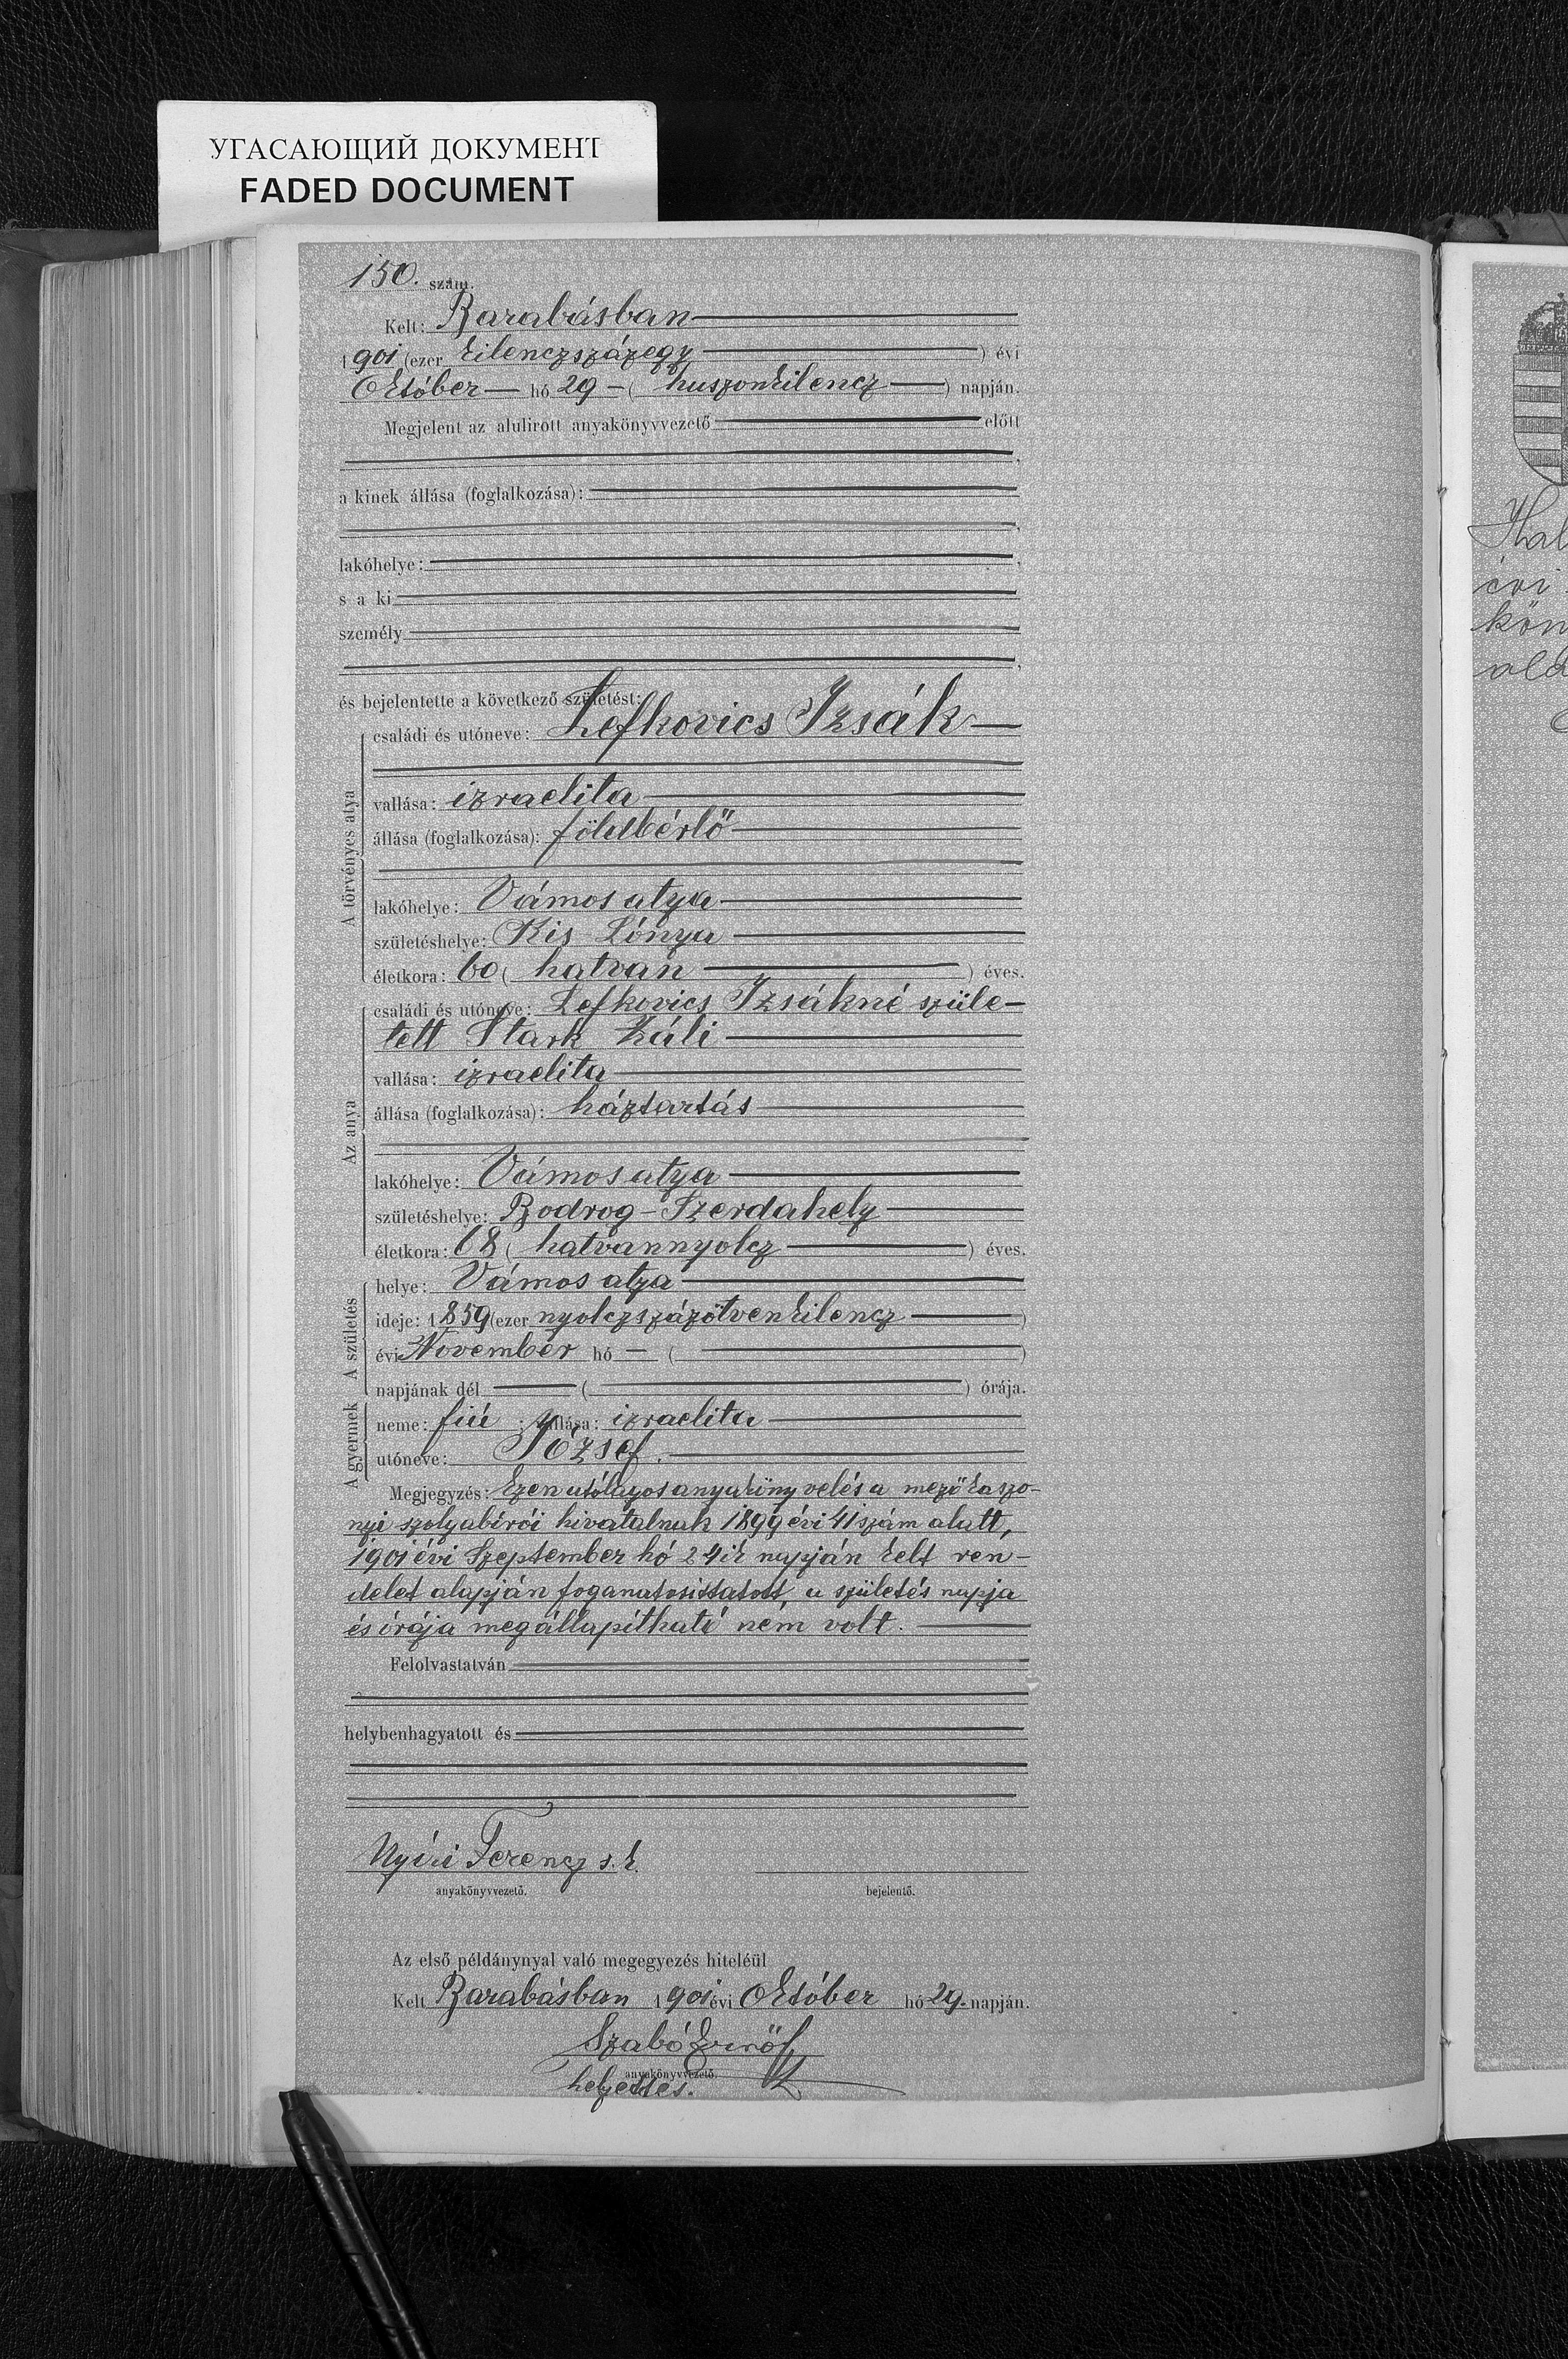 УГАСАЮЩИЙ ДОКУМЕНТ
FADED DOCUMENT
150. szám.
Kelt: Barabásban
1901 (ezer kilenczszázegy) évi
Október hó 29 (huszonkilencz) napján.
Megjelent az alulirott anyakönyvvezető előtt
a kinek állása (foglalkozása):
lakóhelye:
s a ki
személy
és bejelentette a következő születést:
A törvényes atya
családi és utóneve: Lefkovics Izsák
vallása: izraelita
állása (foglalkozása): földbérlő
lakóhelye: Vámosatya
születéshelye: Kis Lónya
életkora: 60 (hatvan) éves.
Az anya
családi és utóneve: Lefkovics Izsákné szüle-
tett Stark Záli
vallása: izraelita
állása (foglalkozása): háztartás
lakóhelye: Vámosatya
születéshelye: Bodrog-Szerdahely
életkora: 68 (hatvannyolcz) éves.
A születés
helye: Vámosatya
ideje: 1859 (ezer nyolczszázötvenkilencz)
évi November hó - ( )
napjának dél ( ) órája.
A gyermek
neme: fiú ; vallása: izraelita
utóneve: József.
Megjegyzés: Ezen utólagos anyakönyvelés a mezőkaszo-
nyi szolgabírói hivatalnak 1899 évi 41 szám alatt,
1901 évi Szeptember hó 24ik napján kelt ren-
delet alapján foganatosittatott, a születés napja
és órája megállapítható nem volt.
Felolvastatván
helybenhagyatott és
Nyíri Ferencz s. k.
anyakönyvvezető. bejelentő.
Az első példánynyal való megegyezés hiteléül
Kelt Barabásban 1901 évi Október hó 29. napján.
Szabó Ernő
anyakönyvvezető.
helyettes.
Hal
évi
kön
ala